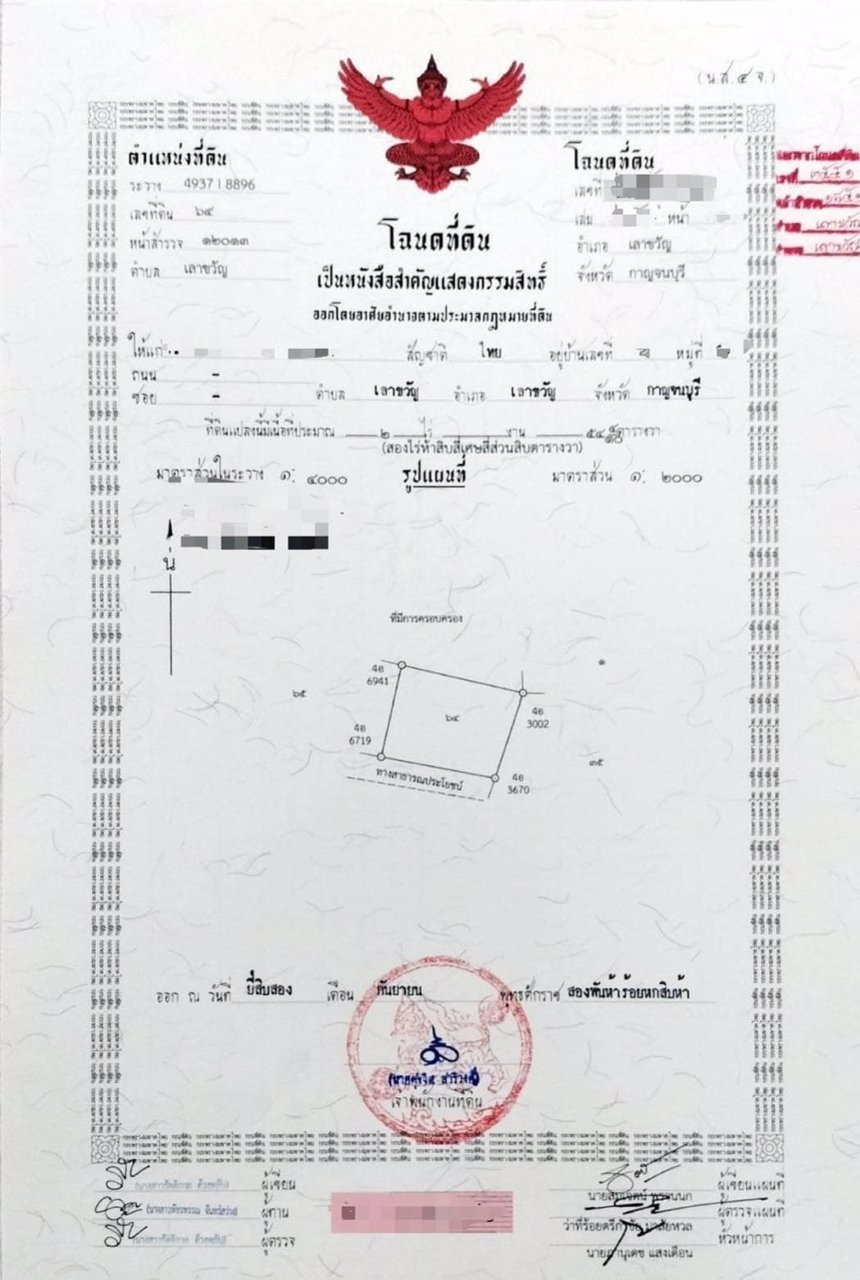 (น.ส.๔ จ.)
ตำแหน่งที่ดิน
ระวาง 4937 I 8896
เลขที่ดิน ๖๔
หน้าสำรวจ ๑๒๐๑๓
ตำบล เลาขวัญ
โฉนดที่ดิน
เลขที่
เล่ม หน้า
อำเภอ เลาขวัญ
จังหวัด กาญจนบุรี
โฉนดที่ดิน
เป็นหนังสือสำคัญแสดงกรรมสิทธิ์
ออกโดยอาศัยอำนาจตามประมวลกฎหมายที่ดิน
ให้แก่ สัญชาติ ไทย อยู่บ้านเลขที่ หมู่ที่
ถนน -
ซอย - ตำบล เลาขวัญ อำเภอ เลาขวัญ จังหวัด กาญจนบุรี
ที่ดินแปลงนี้มีเนื้อที่ประมาณ ๒ ไร่ งาน ๕๔ ๔/๑๐ ตารางวา
(สองไร่ห้าสิบสี่เศษสี่ส่วนสิบตารางวา)
มาตราส่วนในระวาง ๑: ๔๐๐๐ รูปแผนที่ มาตราส่วน ๑: ๒๐๐๐
น
ที่มีการครอบครอง
4อ
6941
๑
๖๕
๖๔
4อ
3002
4อ
6719
๓๕
ทางสาธารณประโยชน์
4อ
3670
ออก ณ วันที่ ยี่สิบสอง เดือน กันยายน พุทธศักราช สองพันห้าร้อยหกสิบห้า
เจ้าพนักงานที่ดิน
ผู้เขียน
ผู้ทาน
ผู้ตรวจ
ผู้เขียนแผนที่
ผู้ตรวจแผนที่
ว่าที่ร้อยตรี
หัวหน้าการ
นายภานุเดช แสงเดือน